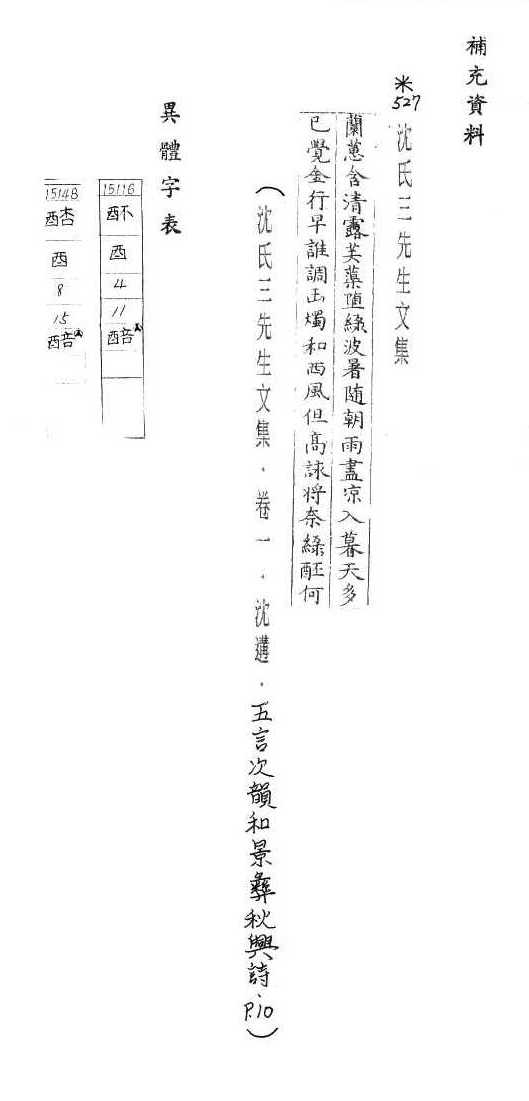 補充資料
米
527
沈氏三先生文集
蘭蕙含清露芙蕖墮綠波暑随朝雨盡凉入暮天多
已覺金行早誰調玉燭和西風但高詠将奈綠醅何
(沈氏三先生文集．卷一．沈遘．五言次韻和景彝秋興詩．P.10)
異體字表
15116
酉
4
11
15148
酉
8
15